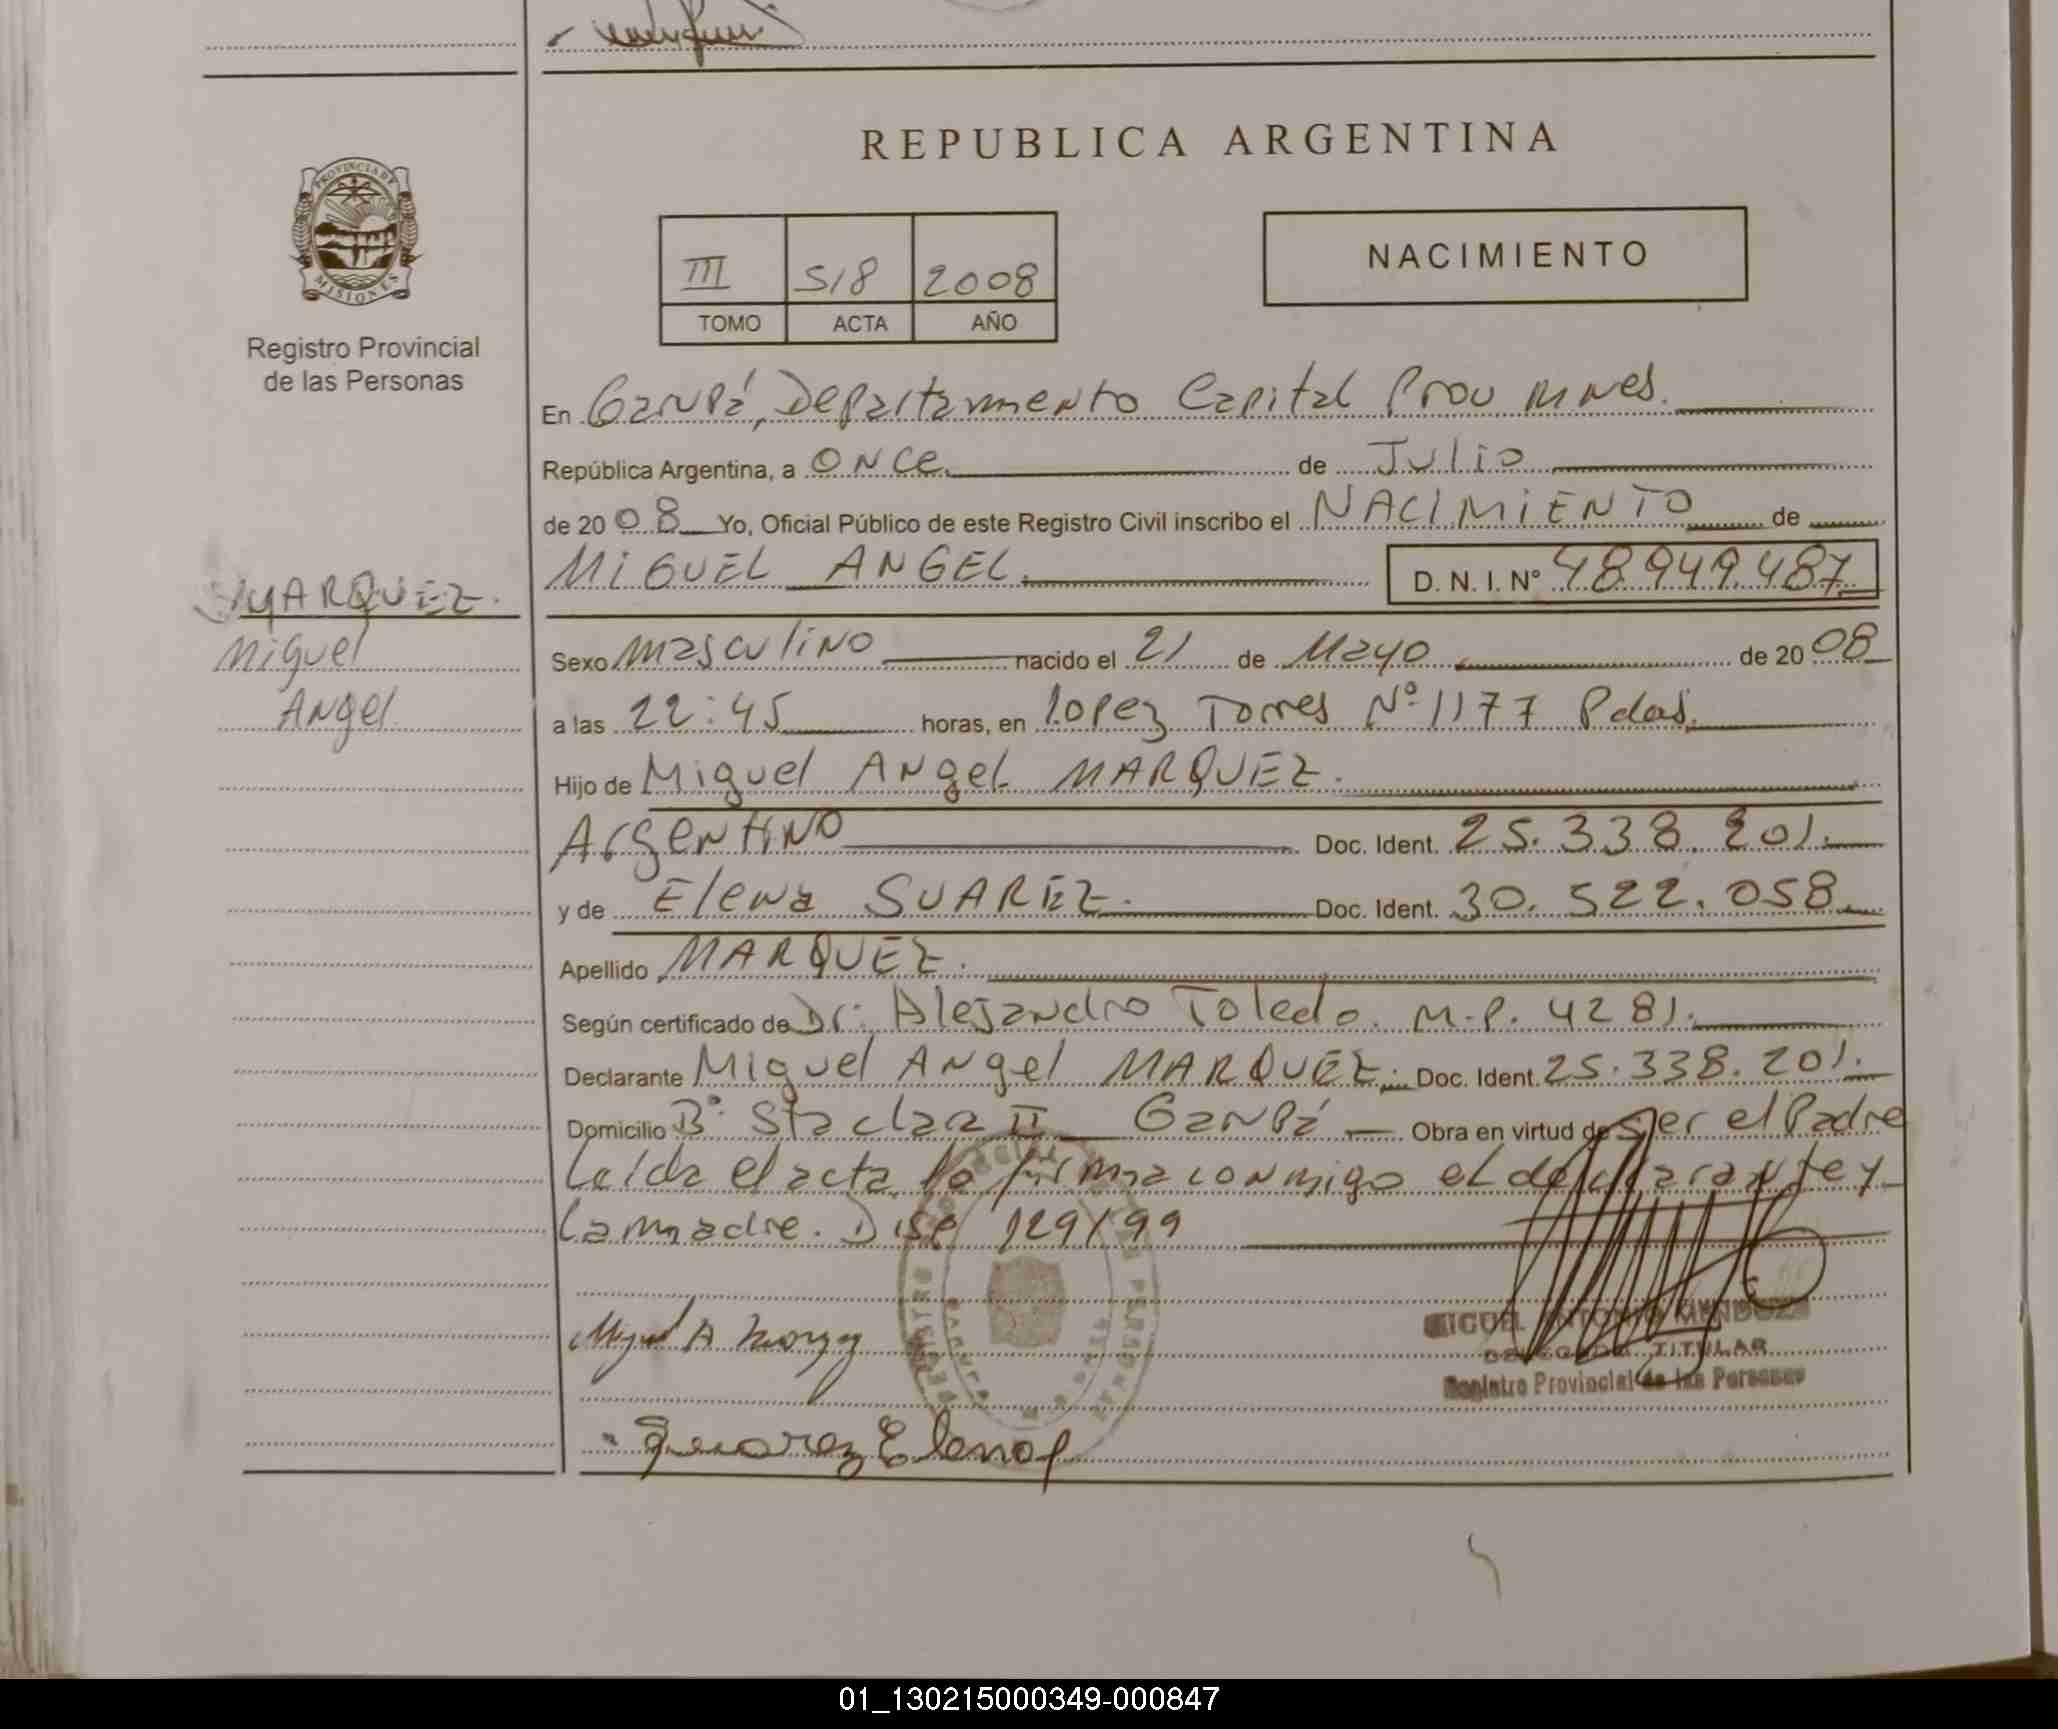 REPUBLICA ARGENTINA
PROVINCIA DE MISIONES
III 518 2008
TOMO ACTA AÑO
NACIMIENTO
Registro Provincial
de las Personas
En Garupá, Departamento Capital Prov Mnes.
República Argentina, a once de Julio
de 2008 Yo, Oficial Público de este Registro Civil inscribo el NACIMIENTO de
MIGUEL ANGEL D. N. I. Nº 48.949.487
MARQUEZ.
Miguel
Angel
Sexo masculino nacido el 21 de Mayo de 2008
a las 22:45 horas, en Lopez Torres Nº 1177 Pdas.
Hijo de Miguel Angel MARQUEZ.
Argentino Doc. Ident. 25.338.201.
y de Elena SUAREZ. Doc. Ident. 30.522.058
Apellido MARQUEZ.
Según certificado de Dr. Alejandro Toledo. M.P. 4281.
Declarante Miguel Angel MARQUEZ. Doc. Ident. 25.338.201.
Domicilio Bº Sta clara II Garupá Obra en virtud de ser el Padre
Leída el acta la firma conmigo el declarante y
la madre. Disp 129/99
Miguel A
MIGUEL ANTONIO MENDOZA
DELEGADO TITULAR
Registro Provincial de las Personas
Suarez Elena
01_130215000349-000847